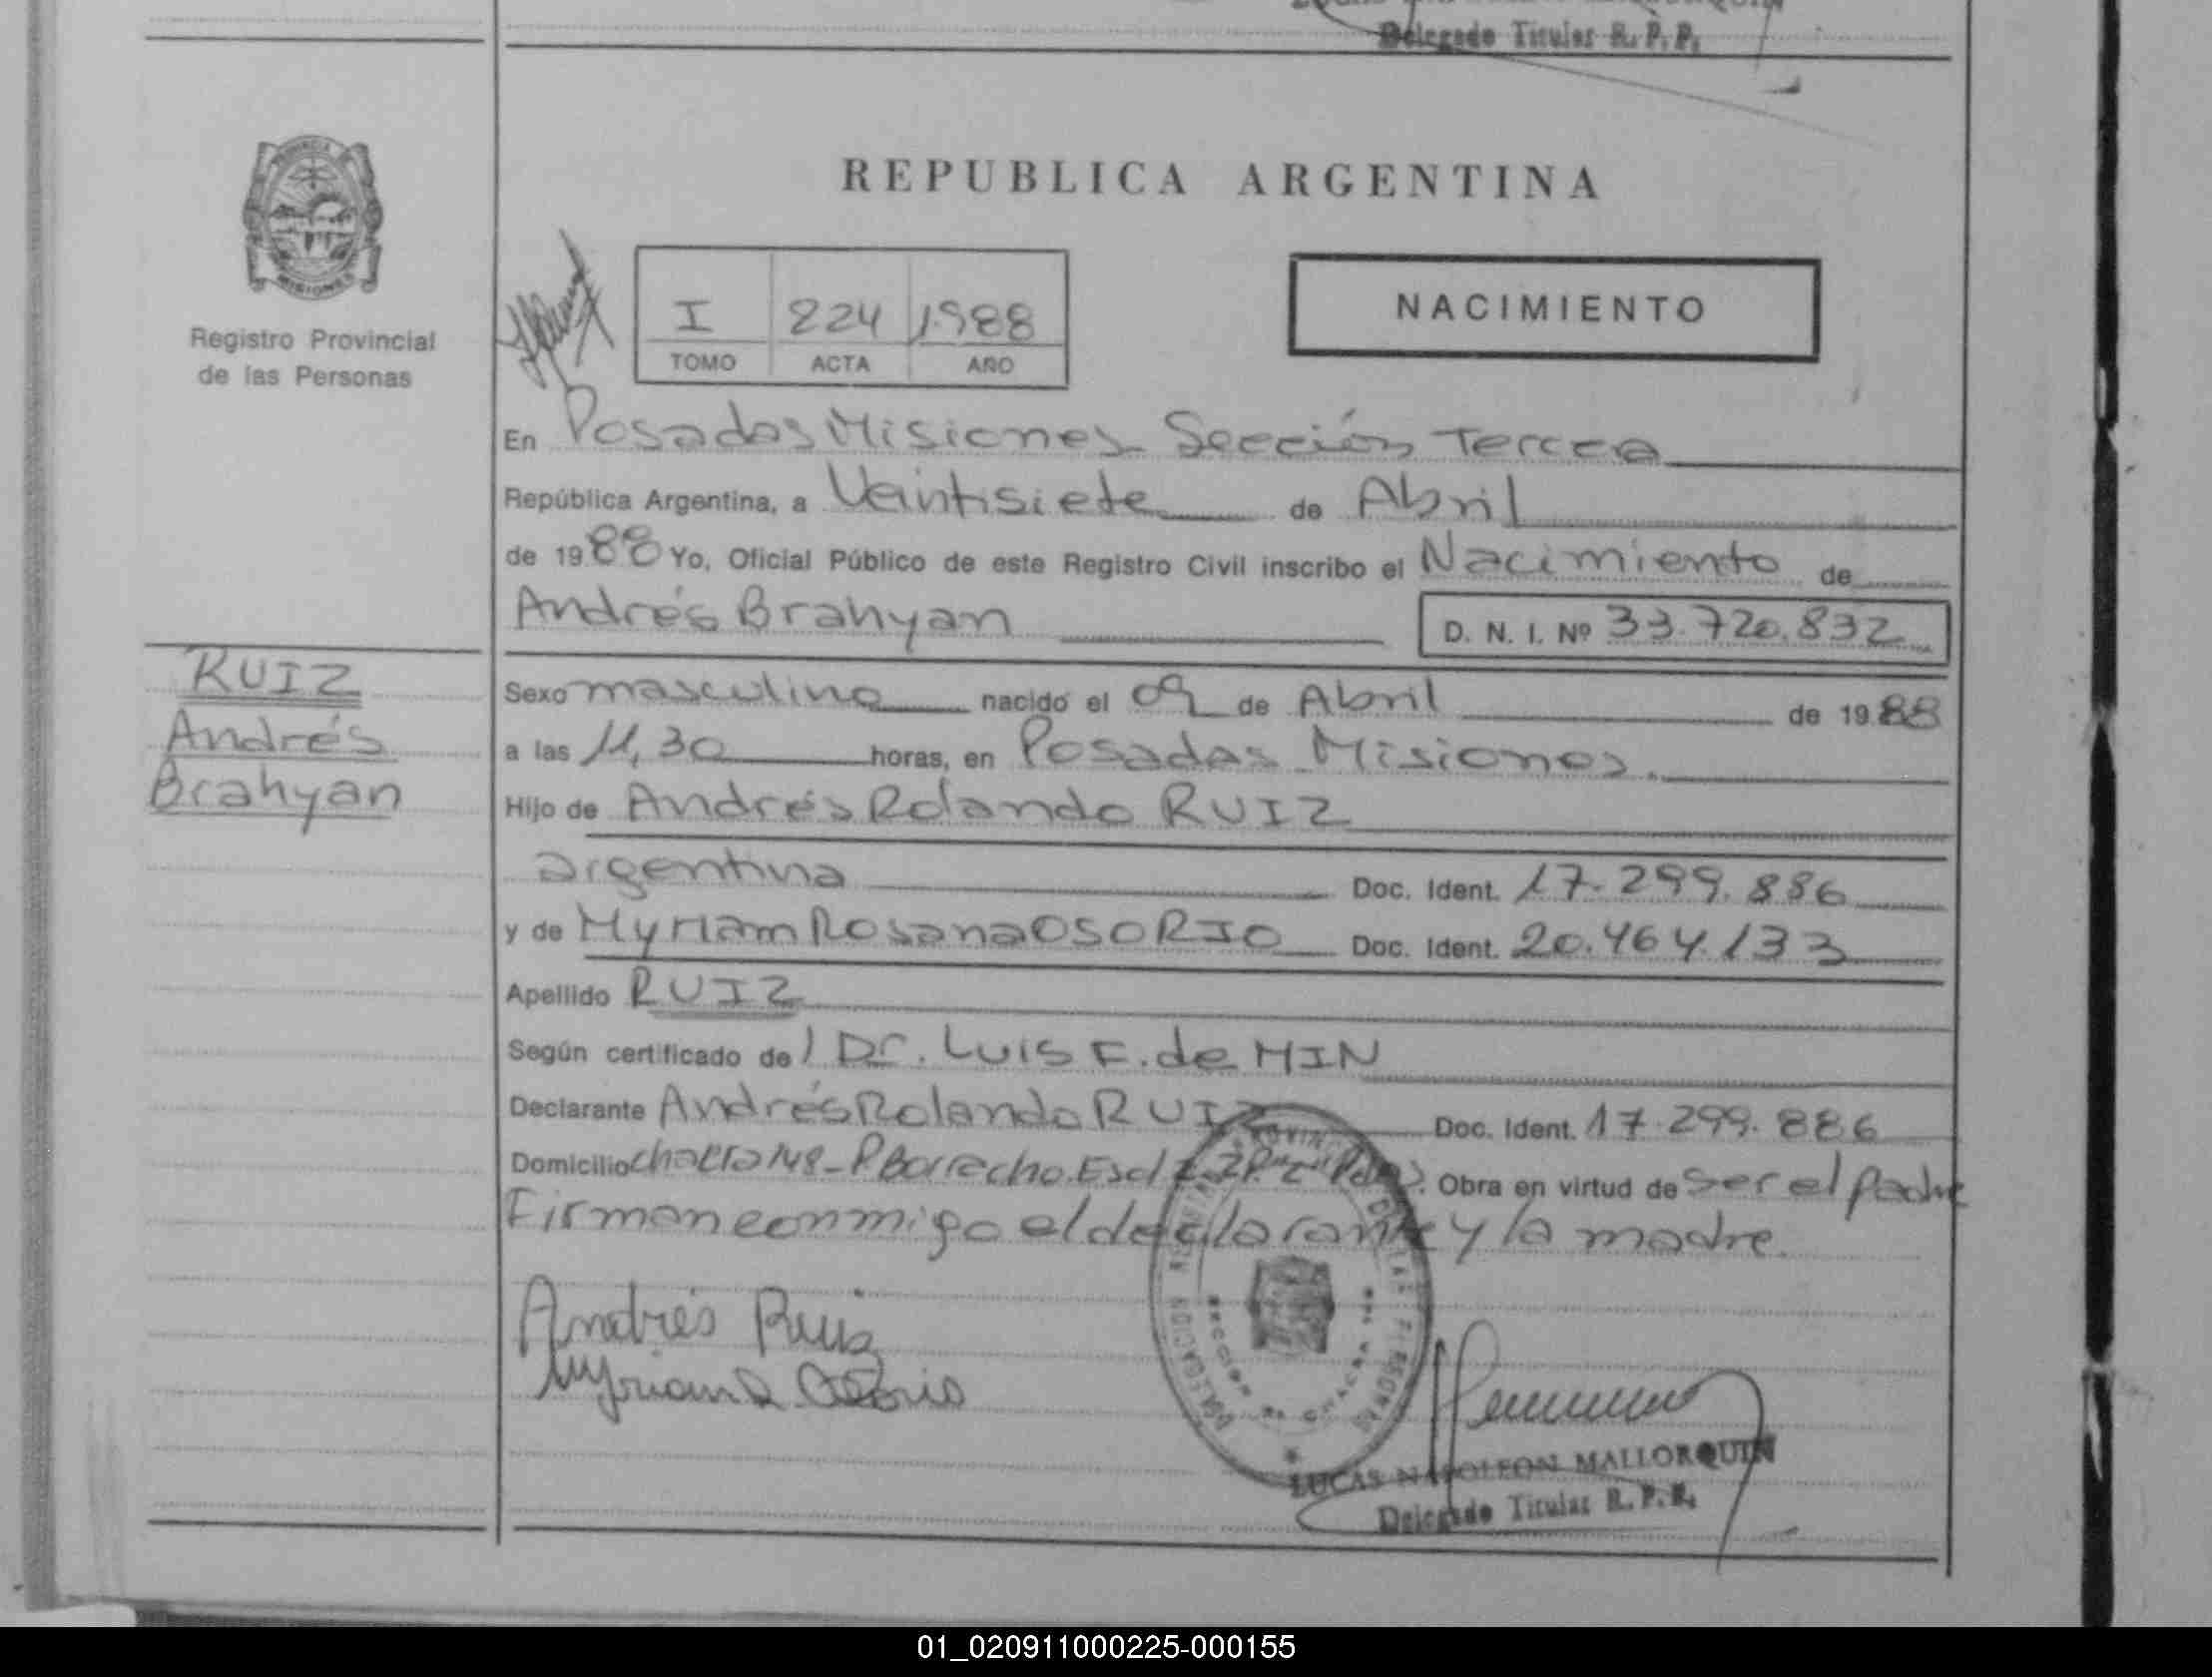 Delegado Titular R. P. P.
PROVINCIA
MISIONES
Registro Provincial
de las Personas
REPUBLICA ARGENTINA
I 224 1988
TOMO ACTA AÑO
NACIMIENTO
En Posadas Misiones Sección Tercera
República Argentina, a Veintisiete de Abril
de 1988 Yo, Oficial Público de este Registro Civil inscribo el Nacimiento de
Andrés Brahyan D. N. I. Nº 33.720.832
RUIZ
Andrés
Brahyan
Sexo masculino nacido el 09 de Abril de 1988
a las 11,30 horas, en Posadas Misiones.
Hijo de Andrés Rolando RUIZ
argentina Doc. Ident. 17.299.886
y de Myriam Rosana OSORIO Doc. Ident. 20.464.133
Apellido RUIZ
Según certificado de l Dr. Luis F. de MIN
Declarante Andrés Rolando RUIZ Doc. Ident. 17.299.886
Domicilio chacra 148 - Obra en virtud de ser el padre
Firman conmigo el declarante y la madre.
Andrés Ruiz
Myriam R Osorio
LUCAS NAPOLEON MALLORQUIN
Delegado Titular R. P. P.
01_020911000225-000155